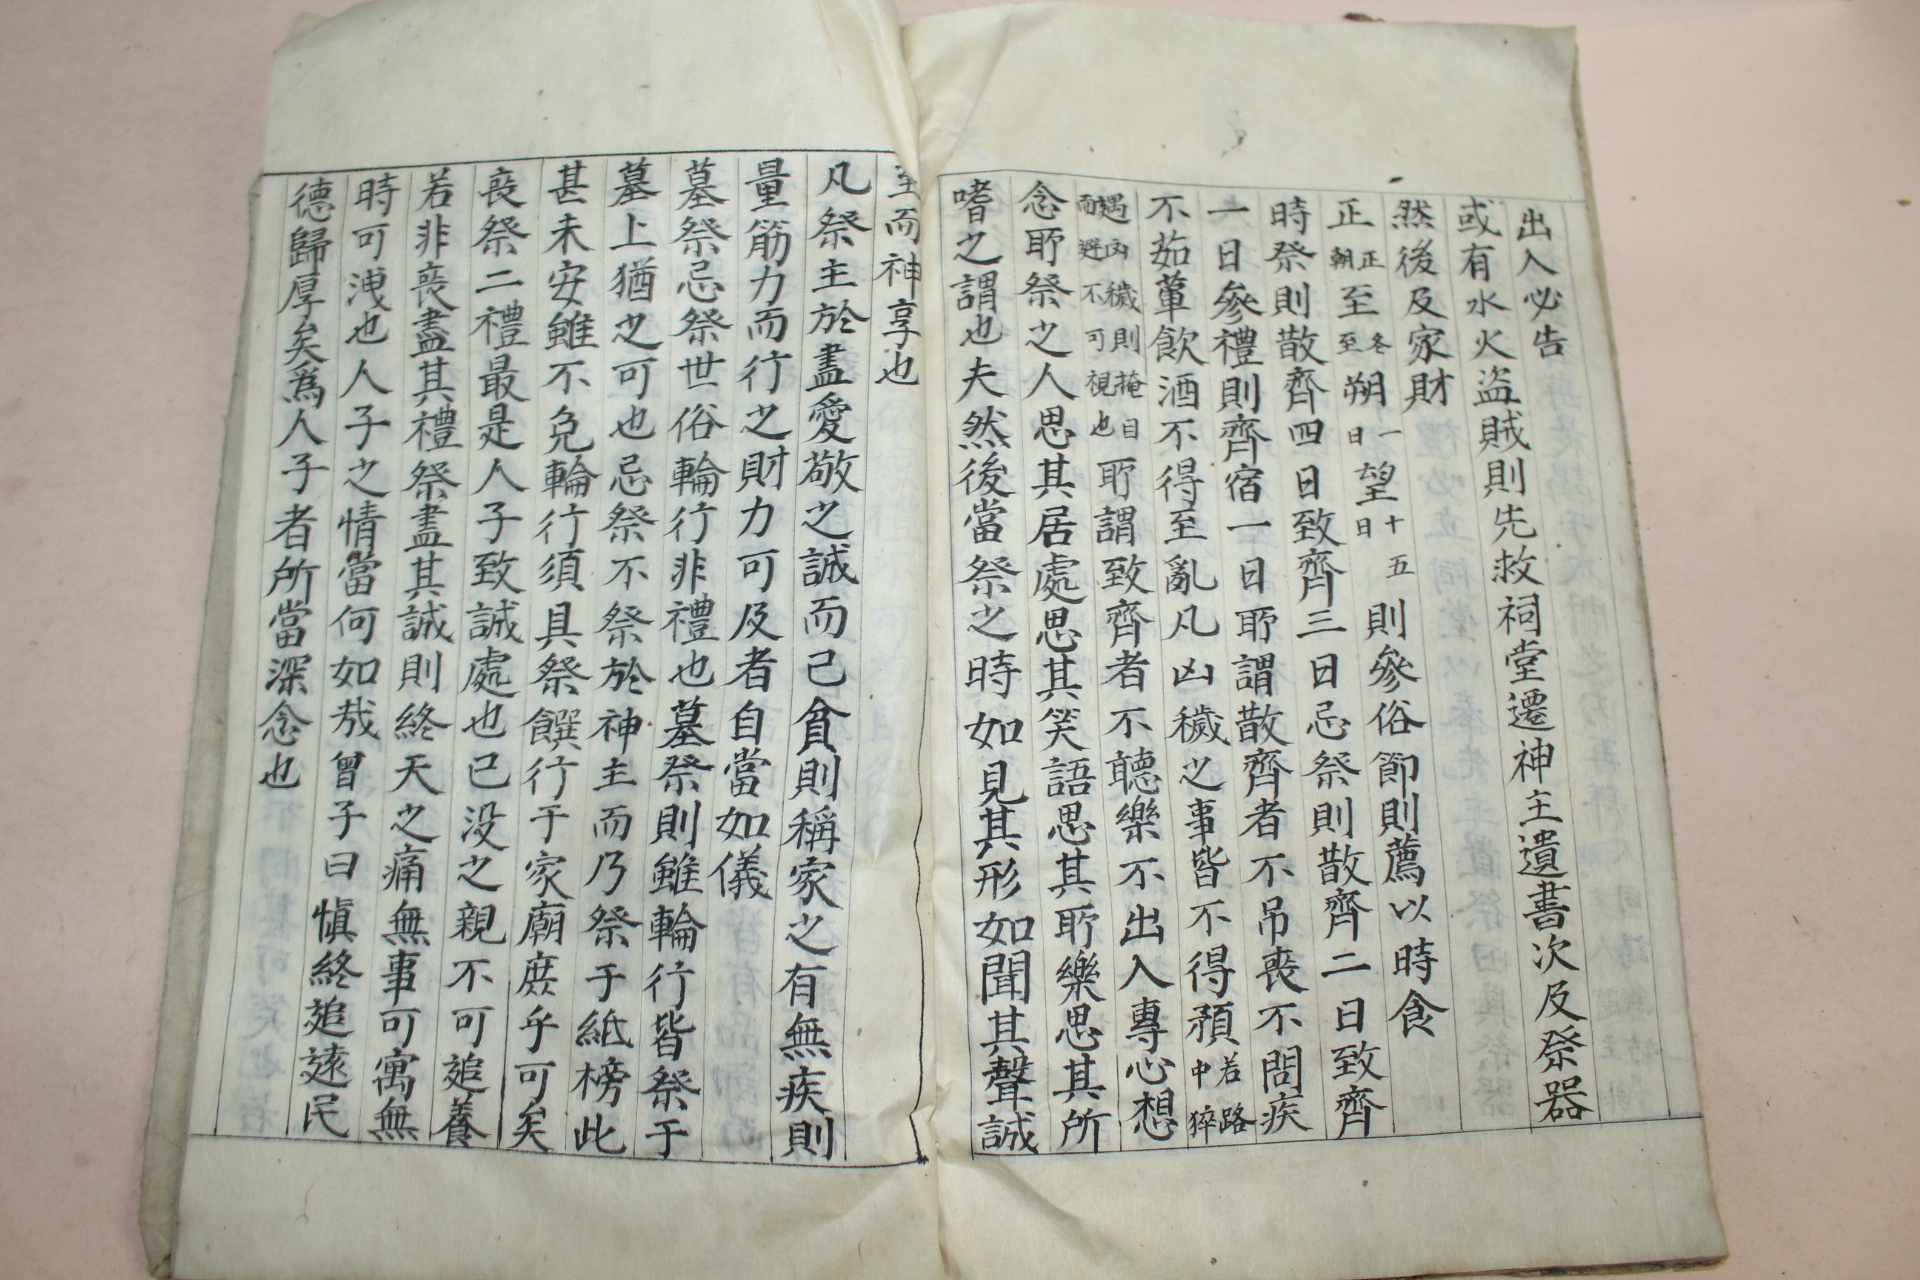 出入必告
或有水火盜賊則先救祠堂遷神主遺書次及祭器
然後及家財
正正朝至冬至朔一日望十五日則參俗節則薦以時食
時祭則散齊四日致齊三日忌祭則散齊二日致齊
一日參禮則齊宿一日所謂散齊者不吊喪不問疾
不茹葷飲酒不得至亂凡凶穢之事皆不得預若路中猝
遇凶穢則掩目而避不可視也所謂致齊者不聽樂不出入專心想
念所祭之人思其居處思其笑語思其所樂思其所
嗜之謂也夫然後當祭之時如見其形如聞其聲誠
至而神享也
凡祭主於盡愛敬之誠而已貧則稱家之有無疾則
量筋力而行之財力可及者自當如儀
墓祭忌祭世俗輪行非禮也墓祭則雖輪行皆祭于
墓上猶之可也忌祭不祭於神主而乃祭于紙榜此
甚未安雖不免輪行須具祭饌行于家廟庶乎可矣
喪祭二禮最是人子致誠處也已没之親不可追養
若非喪盡其禮祭盡其誠則終天之痛無事可寓無
時可洩也人子之情當何如哉曾子曰愼終追遠民
德歸厚矣爲人子者所當深念也